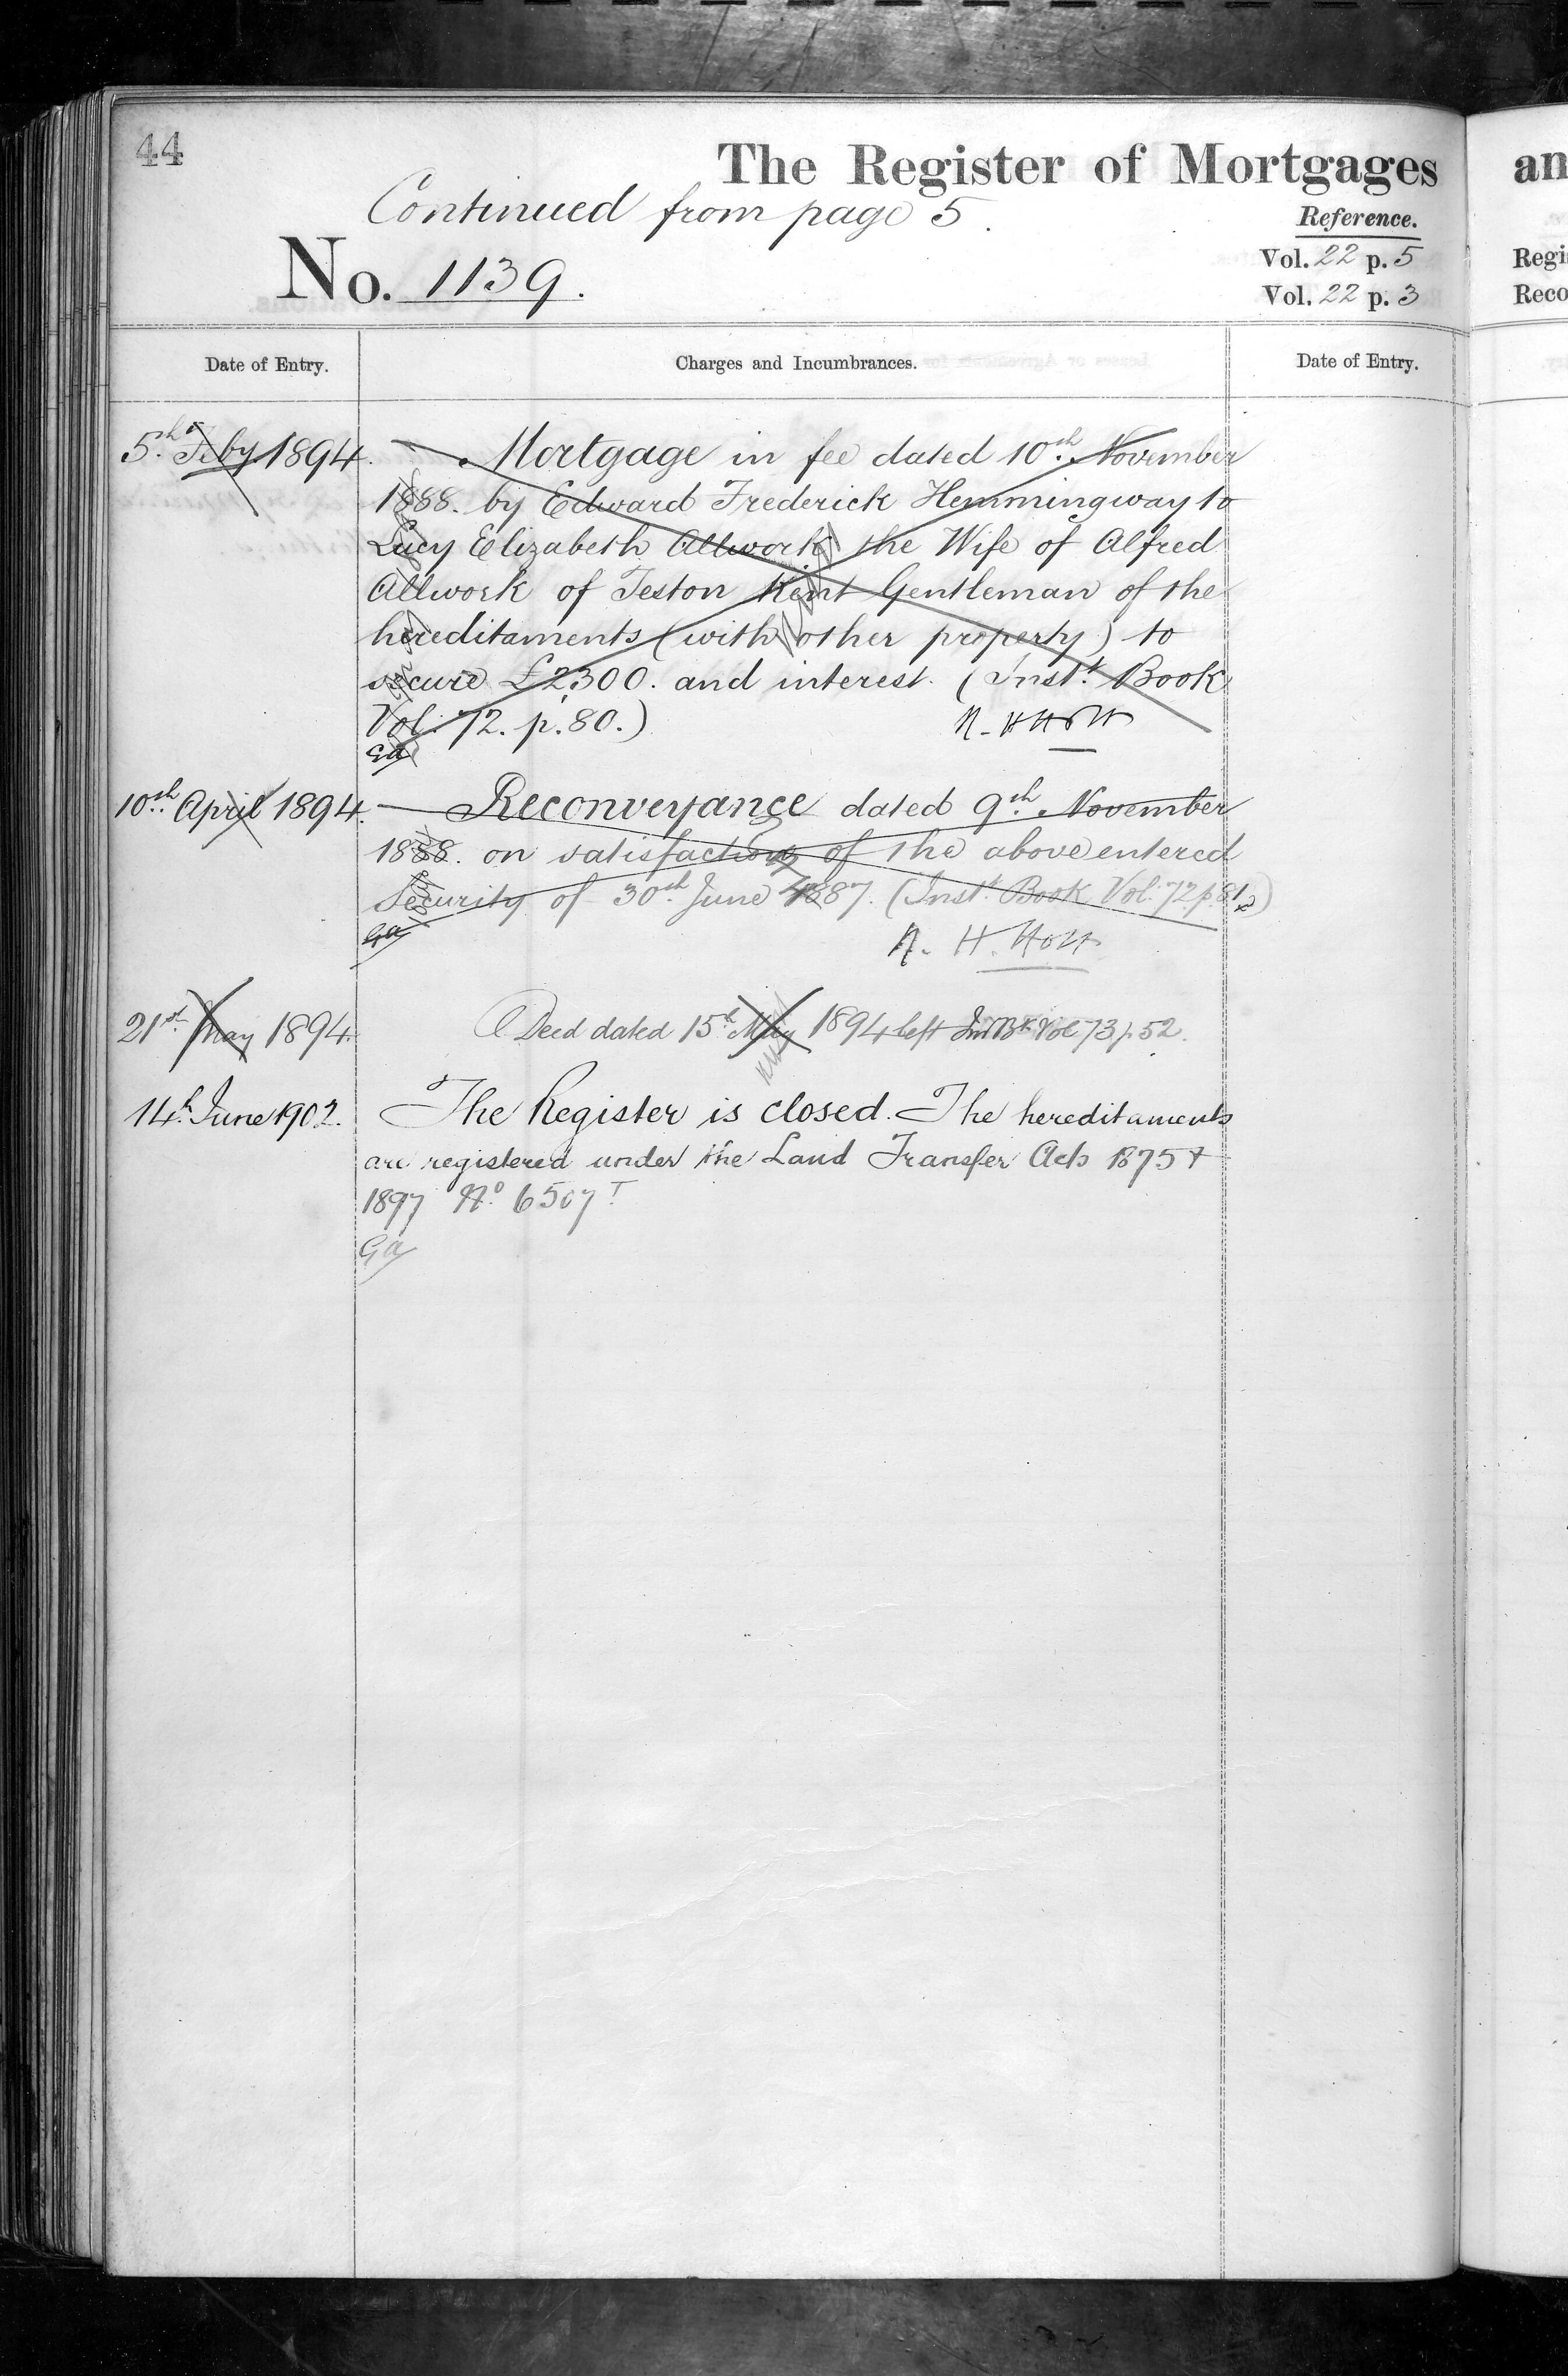 44
The Register of Mortgages
an
Continued from page 5.
Reference.
No. 1139.
Vol. 22 p. 5
Regi
Vol. 22 p. 3
Reco
Date of Entry.
Charges and Incumbrances.
Date of Entry.
5th Feby 1894.
Mortgage in fee dated 10th November
1888. by Edward Frederick Hemmingway to
Lucy Elizabeth Allwork the Wife of Alfred
Allwork of Teston Kent Gentleman of the
hereditaments (with other property) to
secure £2,300. and interest. (Instt Book
Vol: 72. p. 80.)
Ga
10th April 1894.
Reconveyance dated 9th November
1888. on satisfaction of the above entered
Security of 30th June 1887. (Instt Book Vol: 72 p. 81)
Ga
21st May 1894.
Deed dated 15th May 1894 left Inst Bk Vol 73 p. 52.
14th June 1902.
The Register is closed. The hereditaments
are registered under the Land Transfer Acts 1875 &
1897 No 6507 T
Ga